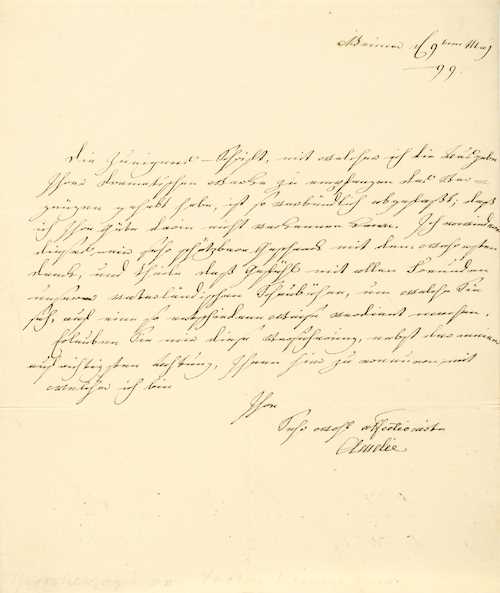 Weimar d 9ten May
99.
Die Zueignungs-Schrift, mit welcher ich die Ausgabe
Ihrer dramatischen Werke zu empfangen das Ver=
gnügen gehabt habe, ist so verbindlich abgefaßt; daß
ich Ihre Güte darin nicht verkennen kann. Ich erwiedere
dieses, mir sehr schätzbare Geschenk mit dem wahresten
Dank, und theile das Gefühl mit allen Freunden
unserer vaterländischen Schaubühne, um welche Sie
sich, auf eine so entschiedene Weise verdient machen.
Erlauben Sie mir diese Versicherung, nebst der meiner
aufrichtigsten Achtung, Ihnen hier zu erneuern, mit
welcher ich bin
Ihre
Sehr wohl affectionirte
Amelie